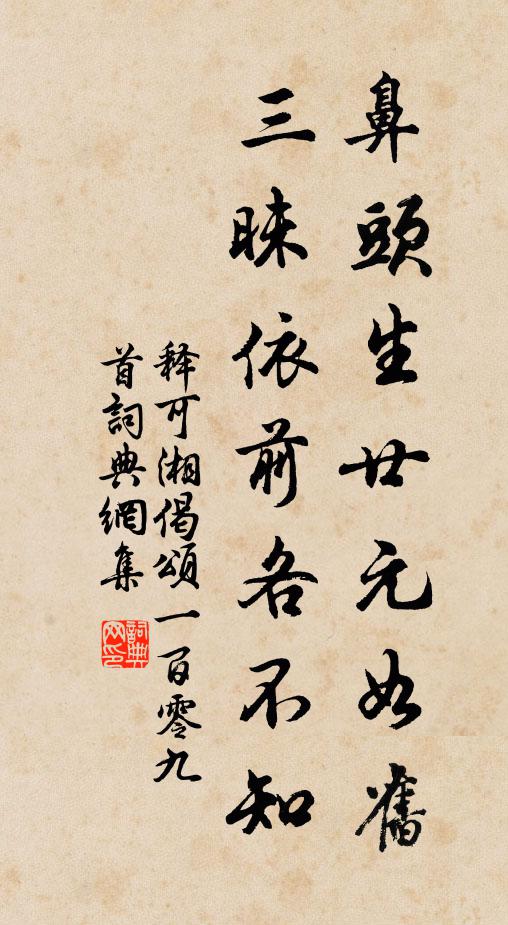 鼻頭生廿元如舊
三昧依前各不知
釋可湘偈頌一百零九
首詞典網集
詞典網印